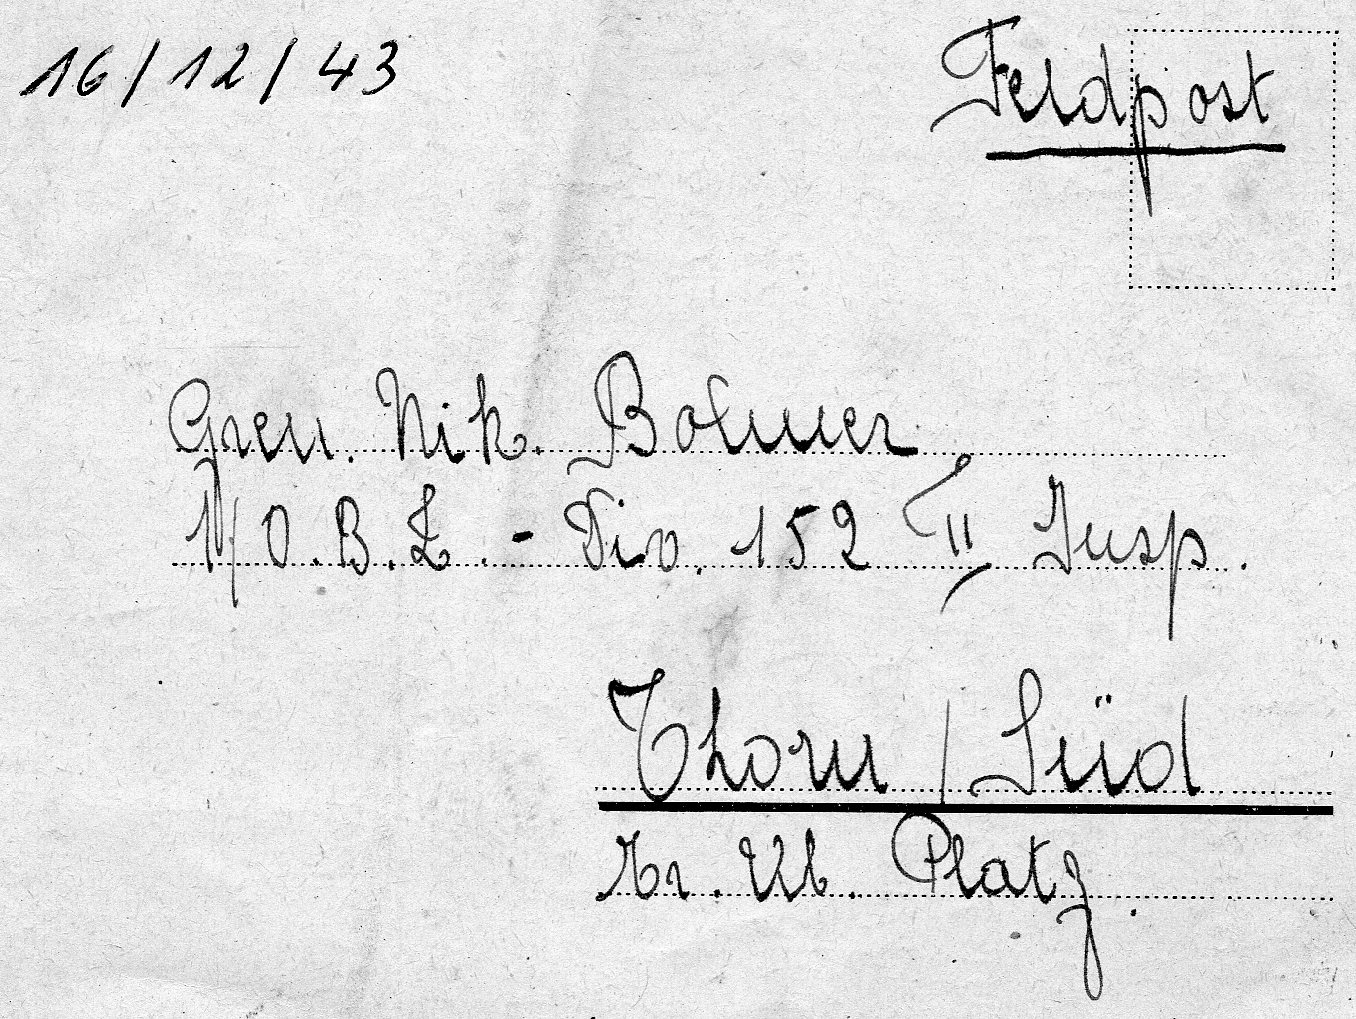 16/12/43
Feldpost
Gren. Nik. Bolmer
1/O.B.L.-Div. 152 II Insp.
Thorn / Süd
Tr. Üb. Platz.